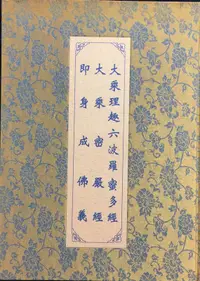 大乘理趣六波羅蜜多經
大乘密嚴經
即身成佛義